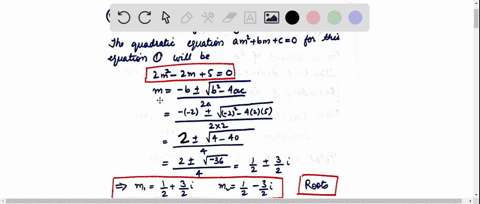 The quadratic equation am²+bm+c=0 for this
equation ① will be
2m²-2m+5=0
m = -b ± √b²-4ac / 2a
= -(-2) ± √(-2)²-4(2)(5) / 2×2
= 2 ± √4-40 / 4
= 2 ± √-36 / 4 = 1/2 ± 3/2 i
⇒ m₁ = 1/2 + 3/2 i m₂ = 1/2 - 3/2 i Roots